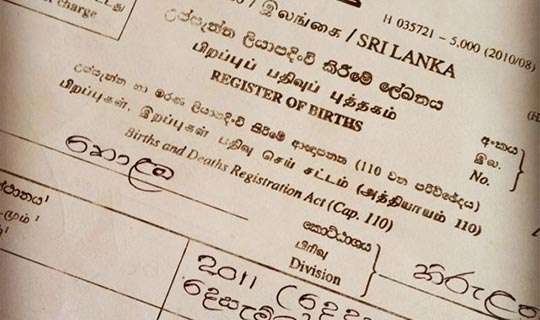 charge
இலங்கை / SRI LANKA
H 035721 - 5,000 (2010/08)
උප්පැන්න ලියාපදිංචි කිරීමේ ලේඛනය
பிறப்புப் பதிவுப் புத்தகம்
REGISTER OF BIRTHS
උප්පැන්න හා මරණ ලියාපදිංචි කිරීමේ ආඥාපනත (110 වන පරිච්ඡේදය)
பிறப்புகள், இறப்புகள் பதிவு செய் சட்டம் (அத்தியாயம் 110)
Births and Deaths Registration Act (Cap. 110)
අංකය
இல.
No.
කොළඹ
කොට්ඨාශය
பிரிவு
Division
2011